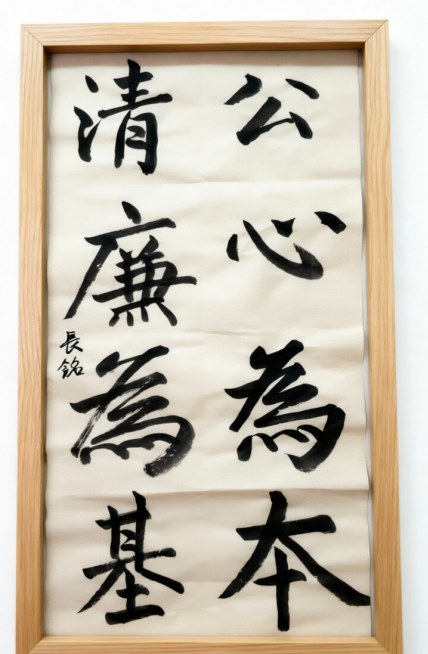 公心為本
清廉為基
長銘